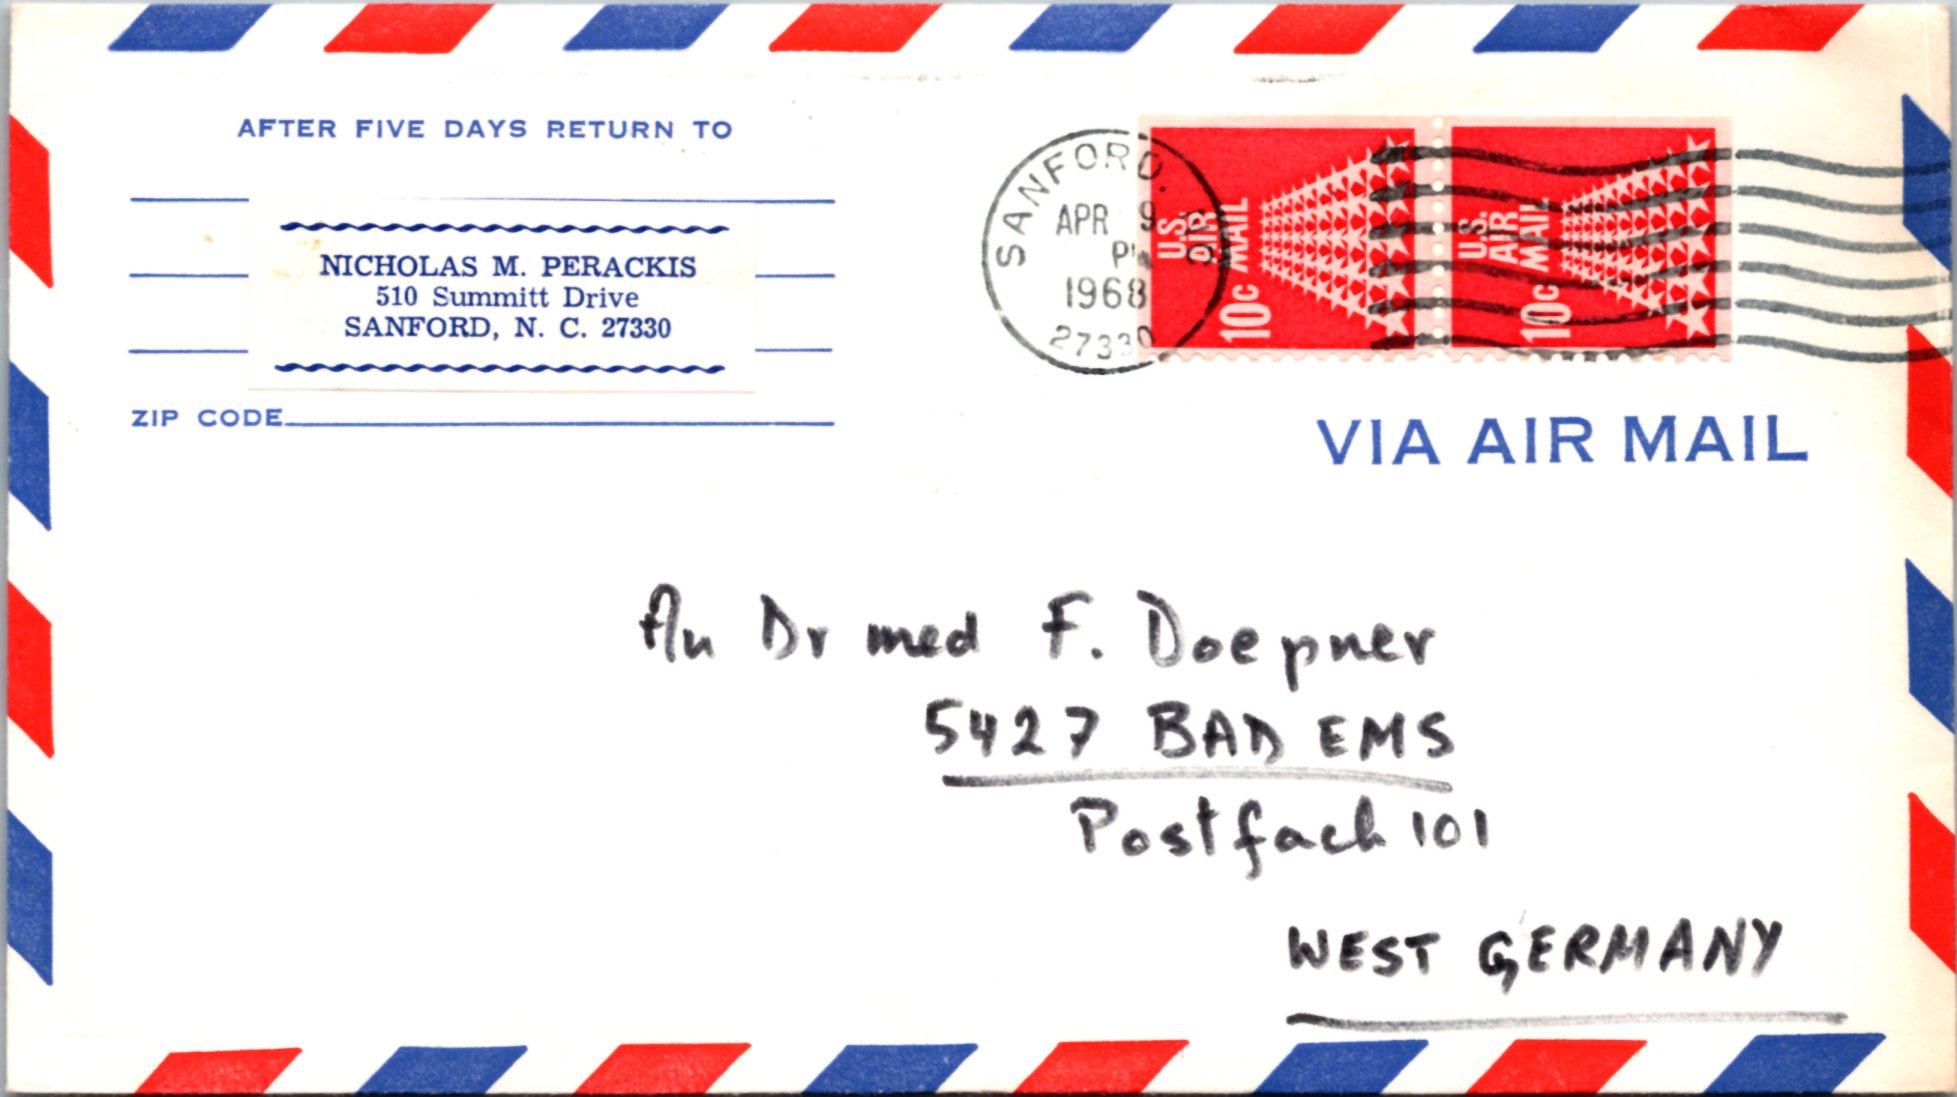 AFTER FIVE DAYS RETURN TO
NICHOLAS M. PERACKIS
510 Summitt Drive
SANFORD, N. C. 27330
ZIP CODE
SANFORD. N.C.
APR 9
PM
1968
27330
U.S.
AIR
MAIL
10c
U.S.
AIR
MAIL
10c
VIA AIR MAIL
An Dr med F. Doepner
5427 BAD EMS
Postfach 101
WEST GERMANY